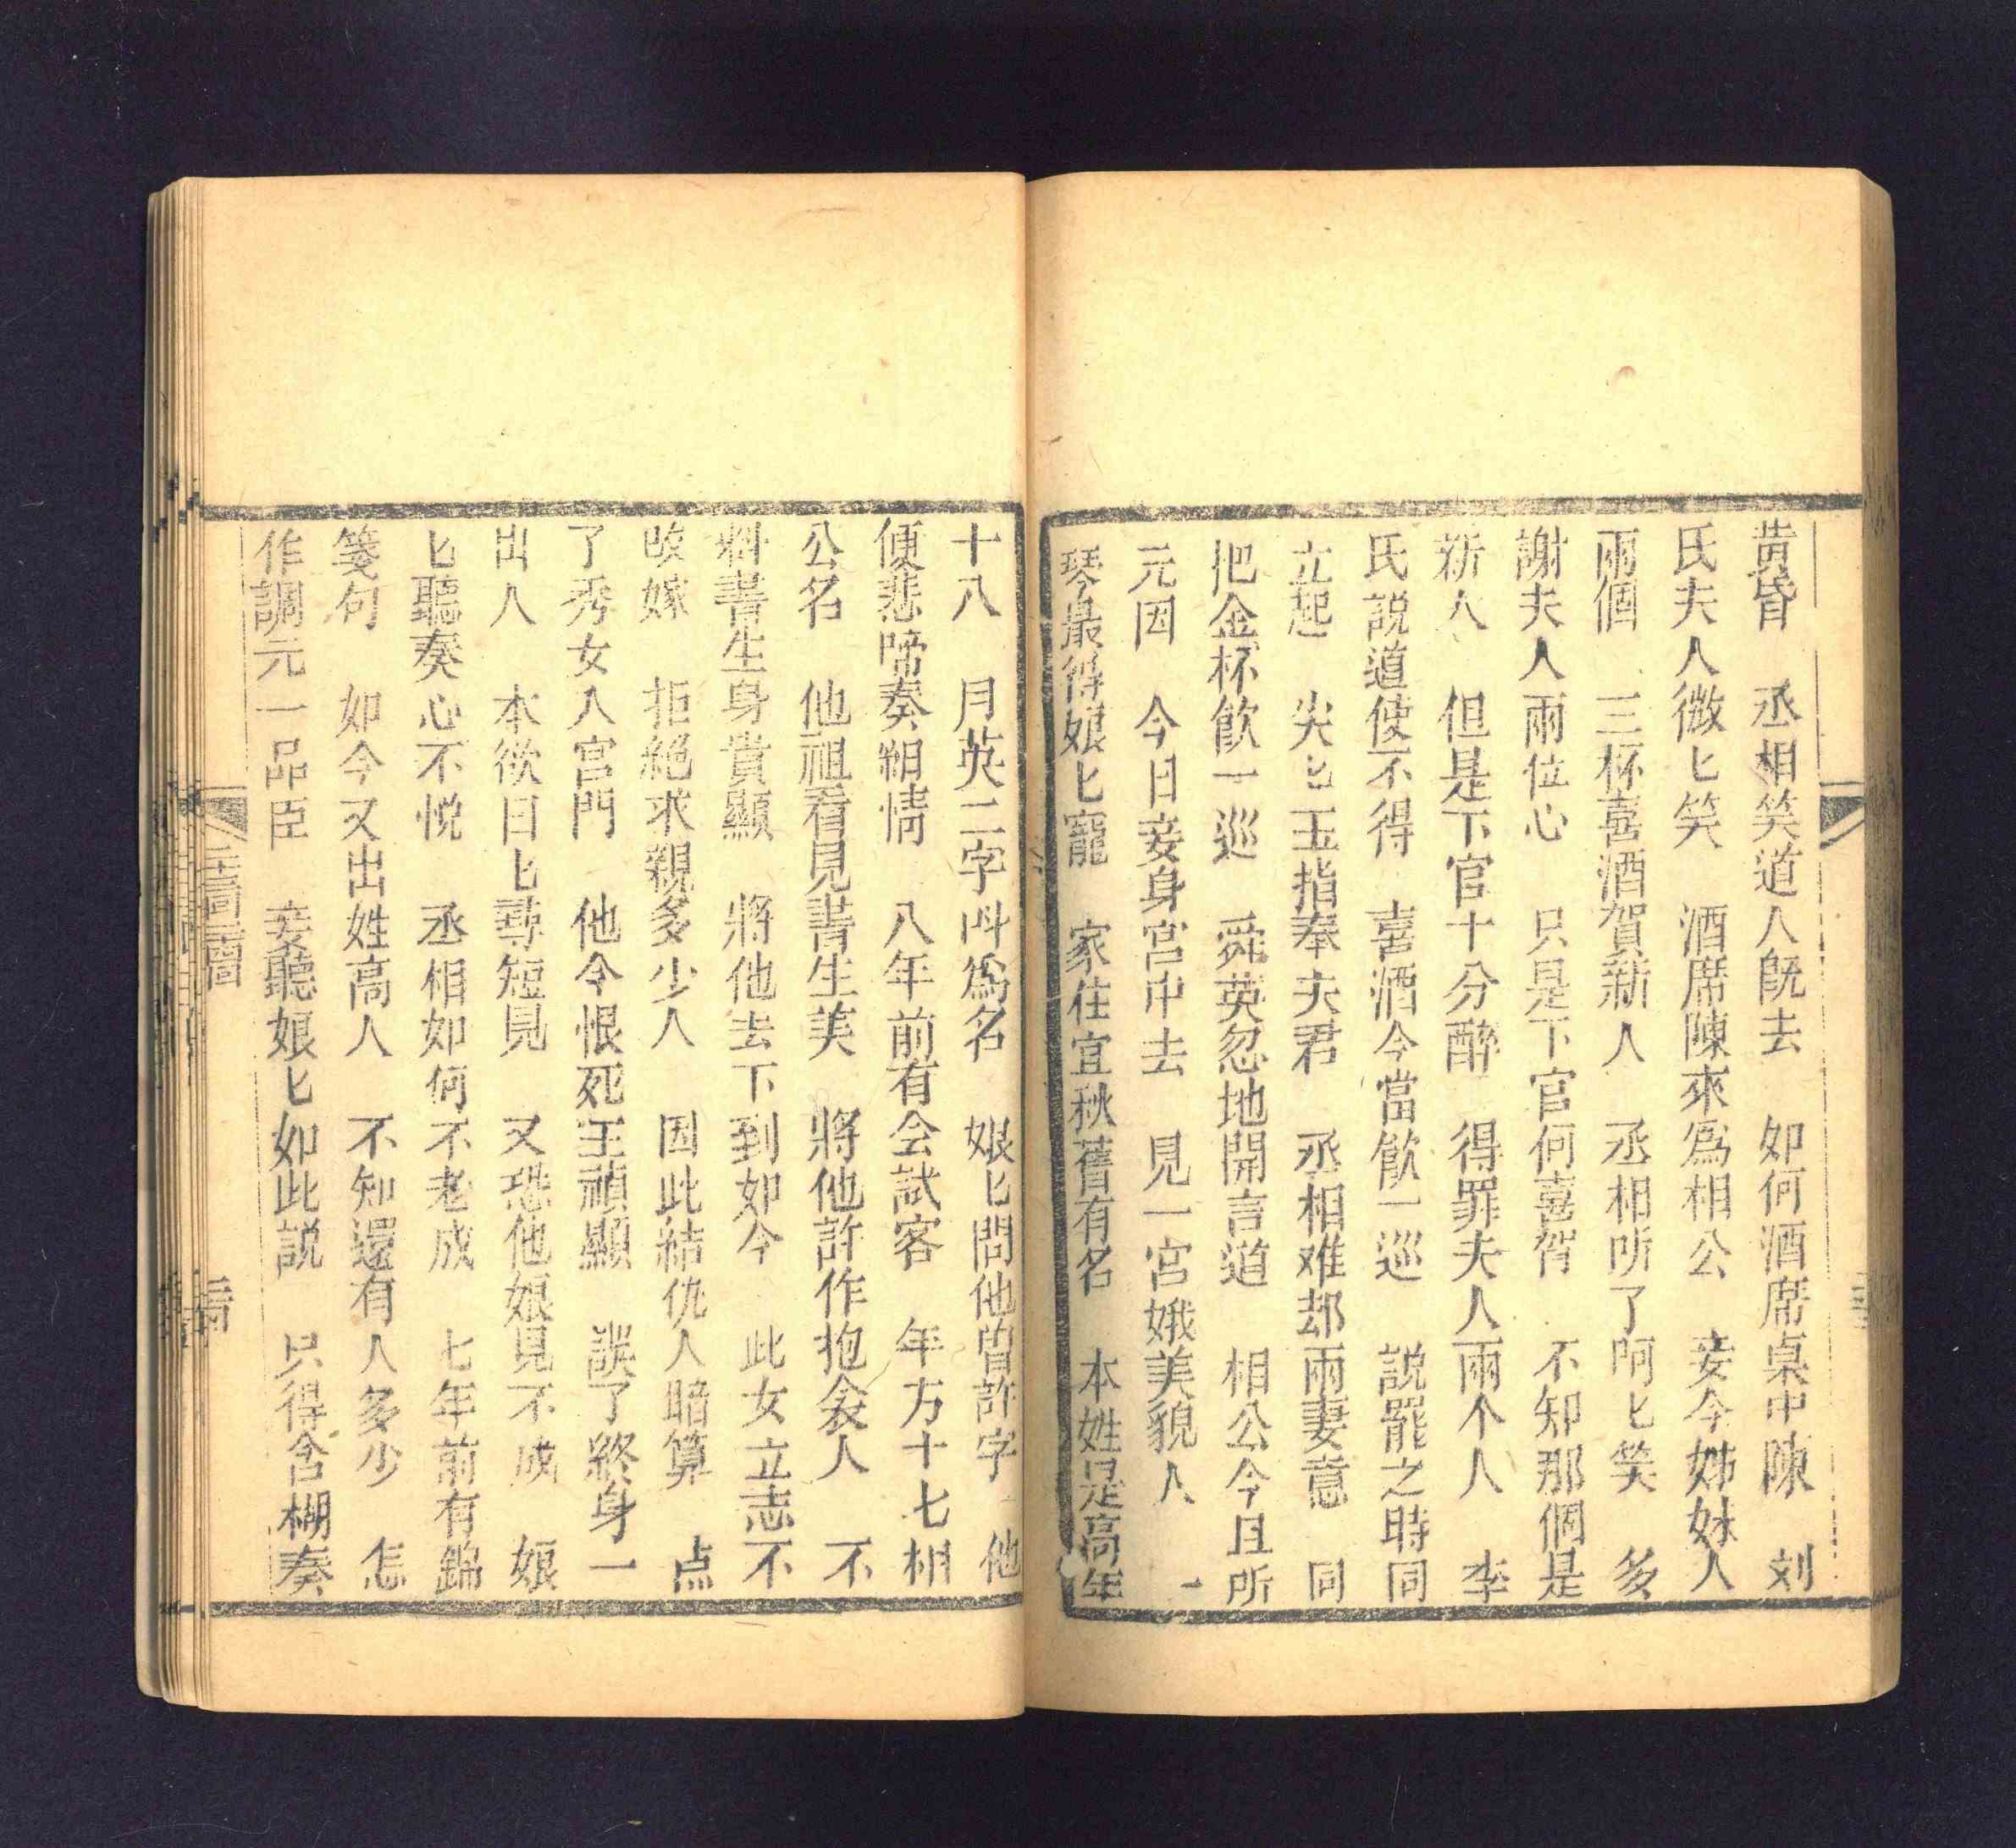 黄昏　丞相笑道人既去　如何酒席桌中陳　刘
氏夫人微匕笑　酒席陳來爲相公　妾今姊妹人
兩個　三杯喜酒賀新人　丞相所了呵匕笑　多
謝夫人兩位心　只是下官何喜賀　不知那個是
新人　但是下官十分醉　得罪夫人兩个人　李
氏説道使不得　喜酒今當飲一巡　説罷之時同
立起　尖匕玉指奉夫君　丞相难却兩妻意　同
把金杯飲一巡　舜英忽地開言道　相公今且所
元因　今日妾身宫中去　見一宫娥美貌人　一
琴最得娘匕寵　家住宜秋舊有名　本姓是高年
十八　月英二字叫爲名　娘匕問他曽許字　他
便悲啼奏朝情　八年前有会試客　年方十七相
公名　他祖看見書生美　將他許作抱衾人　不
料書生身貴顯　將他去下到如今　此女立志不
改嫁　拒絶求親多少人　因此結仇人暗算　点
了秀女入宫門　他今恨死王禎顯　誤了終身一
出人　本欲日匕尋短見　又恐他娘見不成　娘
匕聽奏心不悦　丞相如何不老成　七年前有錦
箋句　如今又出姓高人　不知還有人多少　怎
作調元一品臣　妾聽娘匕如此説　只得含糊奏